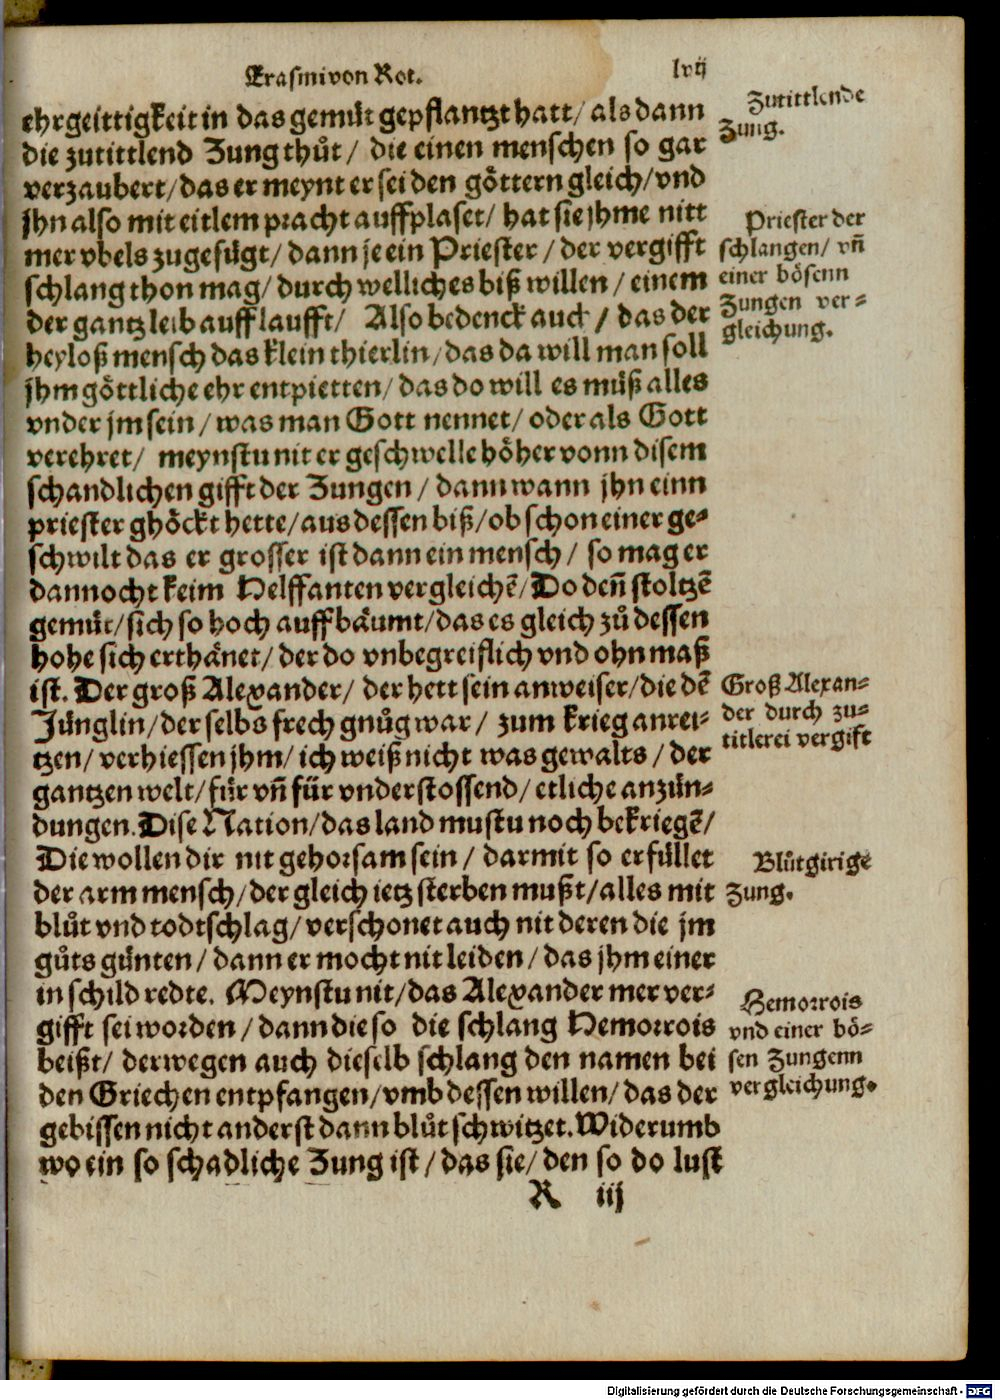 Erasmi von Rot.
lvij
ehrgeittigkeit in das gemüt gepflantzt hatt/ als dann
die zutittlend Zung thůt/ die einen menschen so gar
verzaubert/ das er meynt er sei den göttern gleich/ vnd
jhn also mit eitlem pracht auffplaset/ hat sie jhme nitt
mer vbels zugefügt/ dann je ein Priester/ der vergifft
schlang thon mag/ durch welliches biß willen/ einem
der gantz leib aufflaufft/ Also bedenck auch/ das der
heyloß mensch das klein thierlin/ das da will man soll
jhm göttliche ehr entpietten/ das do will es müß alles
vnder jm sein/ was man Gott nennet/ oder als Gott
verehret/ meynstu nit er geschwelle höher vonn disem
schandlichen gifft der Zungen/ dann wann jhn einn
priester ghöckt hette/ aus dessen biß/ ob schon einer ge-
schwilt das er grosser ist dann ein mensch/ so mag er
dannocht keim Helffanten vergleichē/ Do deñ stoltzē
gemüt/ sich so hoch auffbäumt/ das es gleich zů dessen
hohe sich erthänet/ der do vnbegreiflich vnd ohn maß
ist. Der groß Alexander/ der hett sein anweiser/ die dē
Jünglin/ der selbs frech gnůg war/ zum krieg anrei-
tzen/ verhiessen jhm/ ich weiß nicht was gewalts/ der
gantzen welt/ für vñ für vnderstossend/ etliche anzün-
dungen. Dise Nation/ das land mustu noch bekriegē/
Die wollen dir nit gehorsam sein/ darmit so erfüllet
der arm mensch/ der gleich ietz sterben mußt/ alles mit
blůt vnd todtschlag/ verschonet auch nit deren die jm
gůts günten/ dann er mocht nit leiden/ das jhm einer
in schild redte. Meynstu nit/ das Alexander mer ver-
gifft sei worden/ dann die so die schlang Hemorrois
beißt/ derwegen auch dieselb schlang den namen bei
den Griechen entpfangen/ vmb dessen willen/ das der
gebissen nicht anderst dann blůt schwitzet. Widerumb
wo ein so schadliche Zung ist/ das sie/ den so do lust
R iij
Zutittlende
Zung.
Priester der
schlangen/ vñ
einer bösenn
Zungen ver-
gleichung.
Groß Alexan-
der durch zu-
titlerei vergift
Blůtgirige
Zung.
Hemorrois
vnd einer bö-
sen Zungenn
vergleichung.
Digitalisierung gefördert durch die Deutsche Forschungsgemeinschaft - DFG